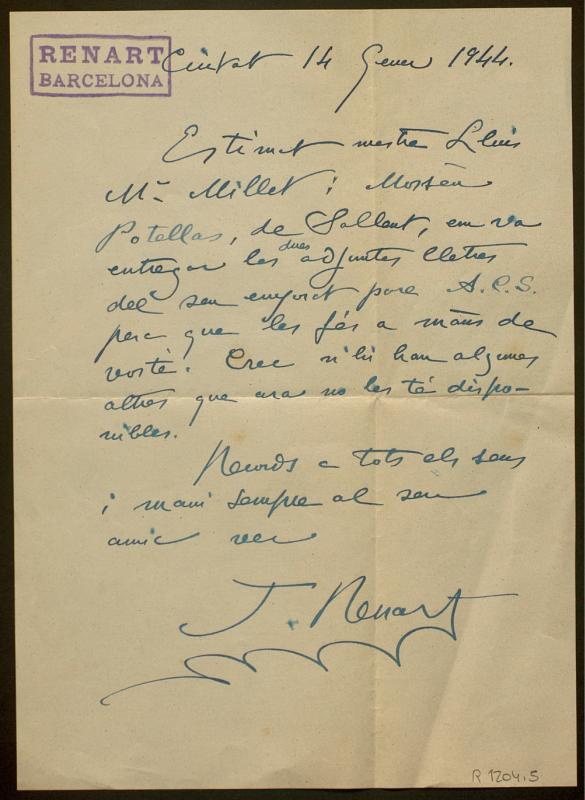 RENART
BARCELONA
Ciutat 14 Gener 1944.
Estimat mestre Lluis
Mª Millet: Mossèn
Potellas, de Sallent, em va
entregar les dues adjuntes lletres
del seu enyorat pare A.C.S.
perc que les fés a mans de
vosté. Crec n'hi han algunes
altres que ara no les té dispo-
nibles.
Records a tots els seus
i mani sempre al seu
amic ver
J. Renart
R 1204.5